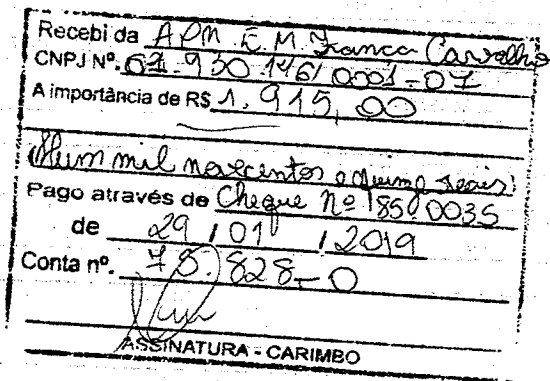 Recebi da APM E.M. Franca Carvalho
CNPJ Nº. 01.930.146/0001-07
A importância de R$ 1.915,00
(Hum mil novecentos e quinze reais)
Pago através de Cheque nº 850035
de 29 / 01 / 2019
Conta nº. 75.828-0
ASSINATURA - CARIMBO